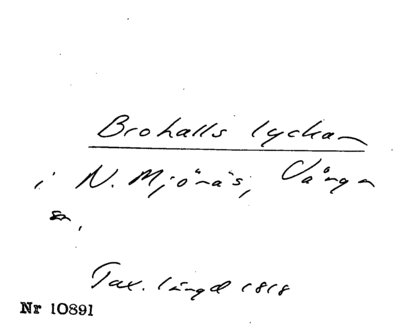 Brohalls lyckan
i N. Mjönäs, Vånga
sn.
Tax. längd 1818
Nr 10891